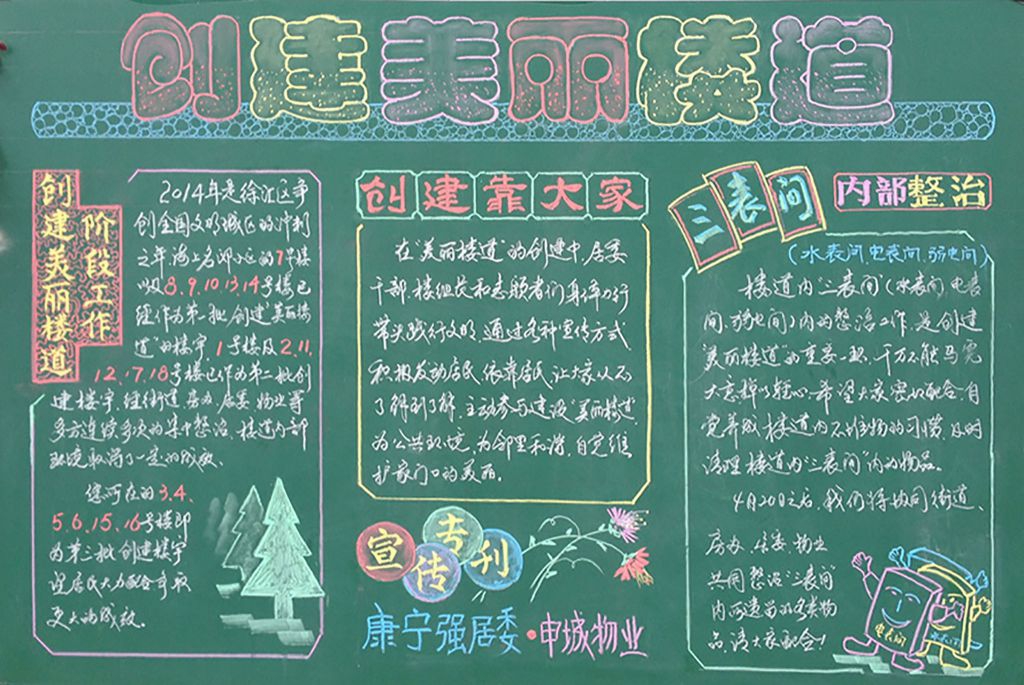 创建美丽楼道
创建美丽楼道
阶段工作
2014年是徐汇区争
创全国文明城区的冲刺
之年海上名邸小区的7号楼
以及8、9、10、13、14号楼已
经作为第一批创建"美丽楼
道"的楼宇，1号楼及2、11、
12、17、18号楼也作为第二批创
建楼宇，经街道、房办、居委、物业等
多方连续多次的集中整治，楼道内部
环境取得了一定的成效。
您所在的3、4、
5、6、15、16号楼即
为第三批创建楼宇
望居民大力配合争取
更大的成效。
创建靠大家
在"美丽楼道"的创建中，居委
干部、楼组长和志愿者们身体力行
带头践行文明，通过各种宣传方式
积极发动居民、依靠居民，让大家从不
了解到了解，主动参与建设"美丽楼道"
为公共环境，为邻里和谐，自觉维
护家门口的美丽。
宣传专刊
康宁强居委·申城物业
三表间
内部整治
（水表间、电表间、弱电间）
楼道内"三表间"（水表间、电表
间、弱电间）内的整治工作，是创建
"美丽楼道"的重要一环，千万不能马虎
大意掉以轻心，希望大家密切配合，自
觉养成楼道内不堆物的习惯，及时
清理楼道内"三表间"内的物品。
4月20日之后，我们将协同街道、
房办、居委、物业
共同整治"三表间"
内所遗留的各类物
品，请大家配合！
电表间
水表间